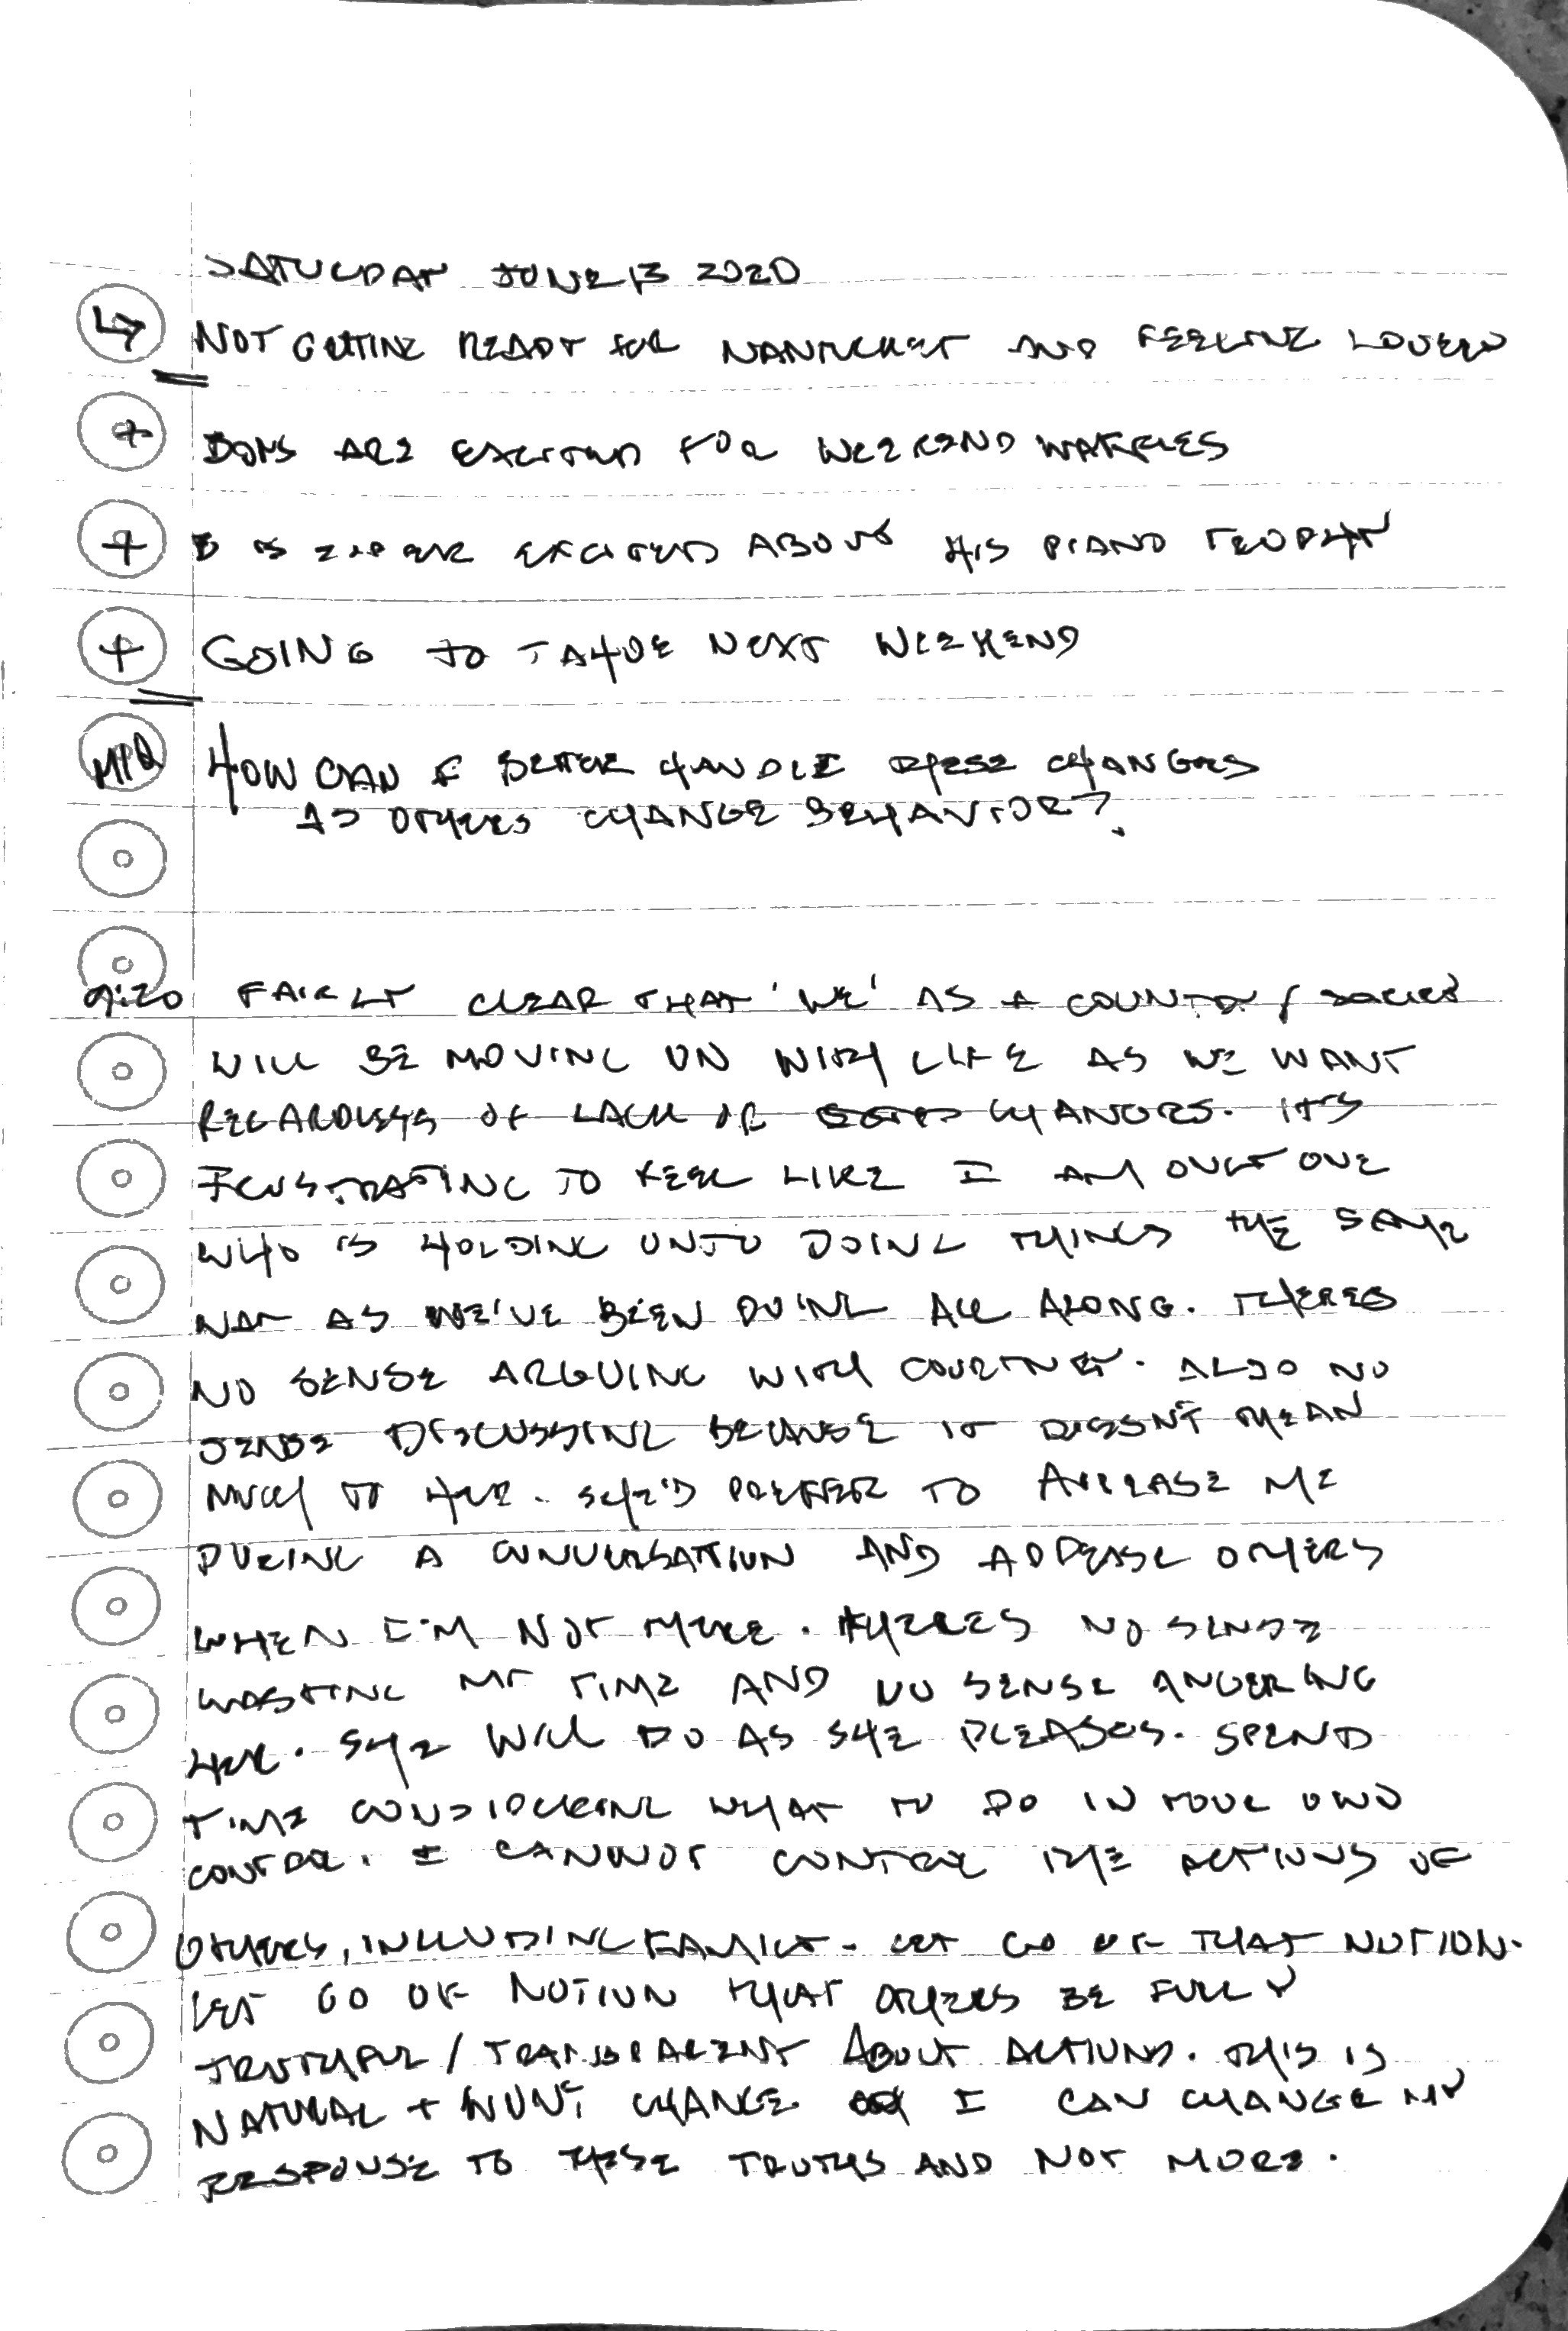 SATURDAY JUNE 13 2020
↳ NOT GETTING READY FOR NANTUCKET AND FEELING
+ BOYS ARE EXCITED FOR WEEKEND WAFFLES
+ B IS SUPER EXCITED ABOUT HIS PIANO TROPHY
+ GOING TO TAHOE NEXT WEEKEND
MIQ HOW CAN I BETTER HANDLE THESE CHANGES
AS OTHERS CHANGE BEHAVIOR?
9:20 FAIRLY CLEAR THAT 'WE' AS A COUNTRY / SOCIETY
WILL BE MOVING ON WITH LIFE AS WE WANT
REGARDLESS OF LACK OF CHANGES. IT'S
FRUSTRATING TO FEEL LIKE I AM ONLY ONE
WHO IS HOLDING ONTO DOING THINGS THE SAME
WAY AS WE'VE BEEN DOING ALL ALONG. THERES
NO SENSE ARGUING WITH COURTNEY. ALSO NO
SENSE DISCUSSING BECAUSE IT DOESN'T MEAN
MUCH TO HER. SHE'D PREFER TO APPEASE ME
DURING A CONVERSATION AND APPEASE OTHERS
WHEN I'M NOT THERE. THERES NO SENSE
WASTING MY TIME AND NO SENSE ANGERING
HER. SHE WILL DO AS SHE PLEASES. SPEND
TIME CONSIDERING WHAT TO DO IN YOUR OWN
CONTROL. I CANNOT CONTROL THE ACTIONS OF
OTHERS, INCLUDING FAMILY. LET GO OF THAT NOTION.
LET GO OF NOTION THAT OTHERS BE FULLY
TRUTHFUL / TRANSPARENT ABOUT ACTIONS. THIS IS
NATURAL + WON'T CHANGE. I CAN CHANGE MY
RESPONSE TO THESE TRUTHS AND NOT MORE.